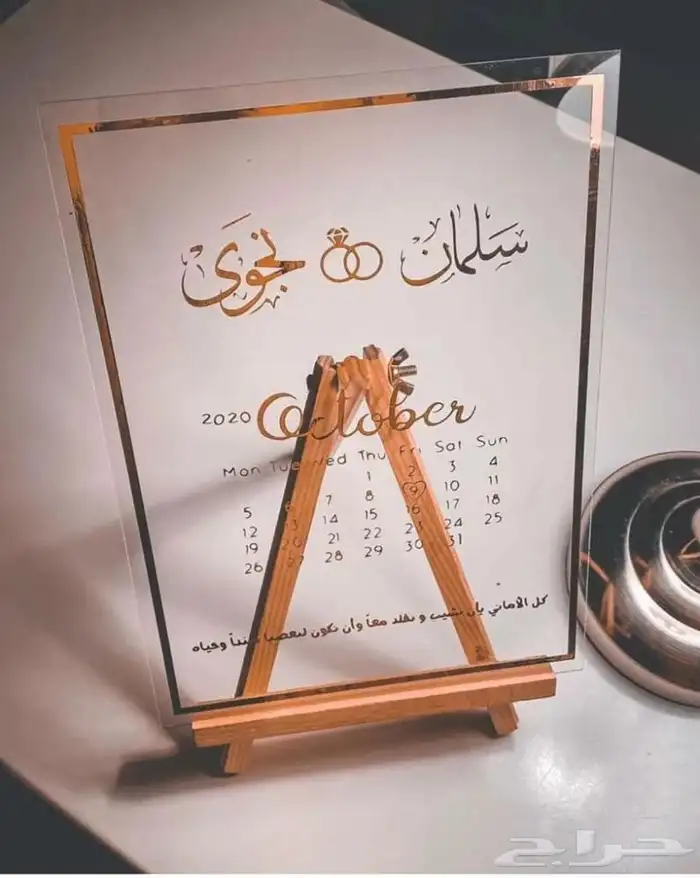 سَلمان نَجوَى
2020 October
Mon Tue Wed Thu Fri Sat Sun
1 2 3 4
5 6 7 8 9 10 11
12 13 14 15 16 17 18
19 20 21 22 23 24 25
26 27 28 29 30 31
كل الأماني بأن نشيب و نخلد معاً وأن نكون لبعضنا سنداً وحياه
حراج